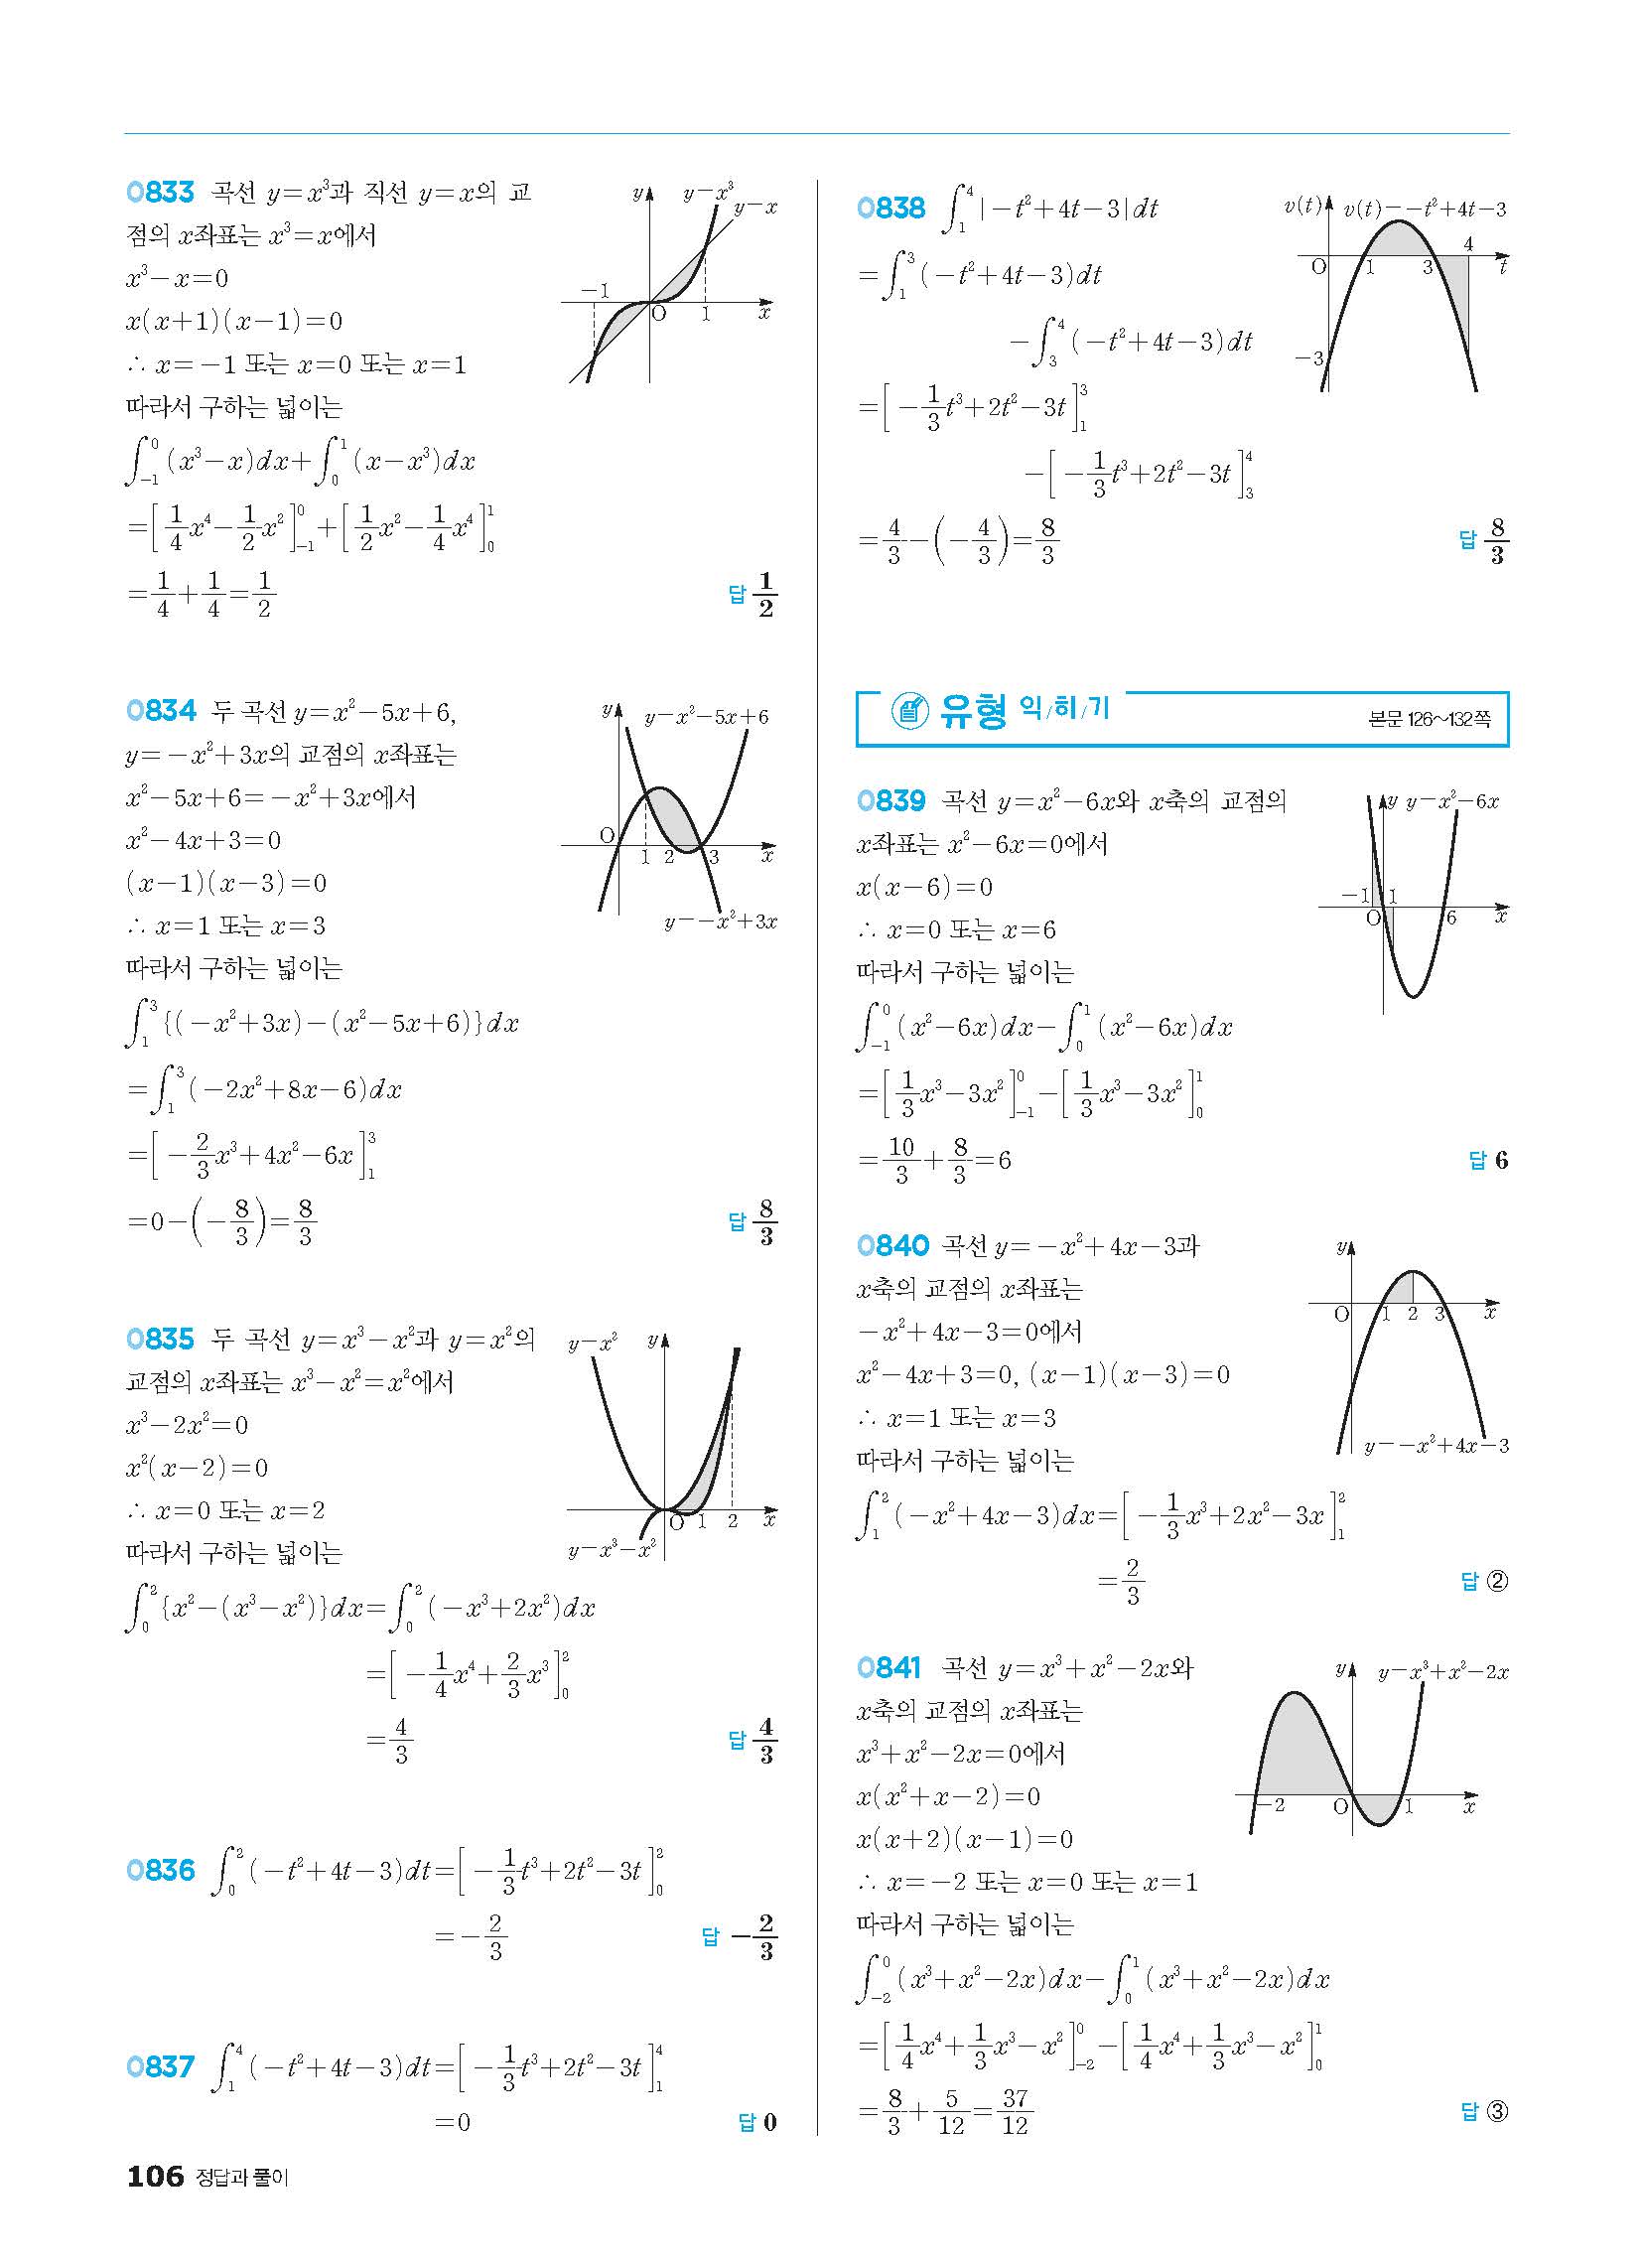 0833 곡선 y=x³과 직선 y=x의 교
점의 x좌표는 x³=x에서
x³-x=0
x(x+1)(x-1)=0
∴ x=-1 또는 x=0 또는 x=1
따라서 구하는 넓이는
∫₋₁⁰(x³-x)dx+∫₀¹(x-x³)dx
=[1/4x⁴-1/2x²]₋₁⁰+[1/2x²-1/4x⁴]₀¹
=1/4+1/4=1/2
답 1/2
y y=x³ y=x
-1 O 1 x
0834 두 곡선 y=x²-5x+6,
y=-x²+3x의 교점의 x좌표는
x²-5x+6=-x²+3x에서
x²-4x+3=0
(x-1)(x-3)=0
∴ x=1 또는 x=3
따라서 구하는 넓이는
∫₁³{(-x²+3x)-(x²-5x+6)}dx
=∫₁³(-2x²+8x-6)dx
=[-2/3x³+4x²-6x]₁³
=0-(-8/3)=8/3
답 8/3
y y=x²-5x+6
O 1 2 3 x
y=-x²+3x
0835 두 곡선 y=x³-x²과 y=x²의
교점의 x좌표는 x³-x²=x²에서
x³-2x²=0
x²(x-2)=0
∴ x=0 또는 x=2
따라서 구하는 넓이는
∫₀²{x²-(x³-x²)}dx=∫₀²(-x³+2x²)dx
=[-1/4x⁴+2/3x³]₀²
=4/3
답 4/3
y=x² y
O 1 2 x
y=x³-x²
0836 ∫₀²(-t²+4t-3)dt=[-1/3t³+2t²-3t]₀²
=-2/3
답 -2/3
0837 ∫₁⁴(-t²+4t-3)dt=[-1/3t³+2t²-3t]₁⁴
=0
답 0
106 정답과 풀이
0838 ∫₁⁴|-t²+4t-3|dt
=∫₁³(-t²+4t-3)dt
-∫₃⁴(-t²+4t-3)dt
=[-1/3t³+2t²-3t]₁³
-[-1/3t³+2t²-3t]₃⁴
=4/3-(-4/3)=8/3
답 8/3
v(t) v(t)=-t²+4t-3
O 1 3 4 t
-3
유형 익/히/기
본문 126~132쪽
0839 곡선 y=x²-6x와 x축의 교점의
x좌표는 x²-6x=0에서
x(x-6)=0
∴ x=0 또는 x=6
따라서 구하는 넓이는
∫₋₁⁰(x²-6x)dx-∫₀¹(x²-6x)dx
=[1/3x³-3x²]₋₁⁰-[1/3x³-3x²]₀¹
=10/3+8/3=6
답 6
y y=x²-6x
-1 1
O 6 x
0840 곡선 y=-x²+4x-3과
x축의 교점의 x좌표는
-x²+4x-3=0에서
x²-4x+3=0, (x-1)(x-3)=0
∴ x=1 또는 x=3
따라서 구하는 넓이는
∫₁²(-x²+4x-3)dx=[-1/3x³+2x²-3x]₁²
=2/3
답 ②
y
O 1 2 3 x
y=-x²+4x-3
0841 곡선 y=x³+x²-2x와
x축의 교점의 x좌표는
x³+x²-2x=0에서
x(x²+x-2)=0
x(x+2)(x-1)=0
∴ x=-2 또는 x=0 또는 x=1
따라서 구하는 넓이는
∫₋₂⁰(x³+x²-2x)dx-∫₀¹(x³+x²-2x)dx
=[1/4x⁴+1/3x³-x²]₋₂⁰-[1/4x⁴+1/3x³-x²]₀¹
=8/3+5/12=37/12
답 ③
y y=x³+x²-2x
-2 O 1 x